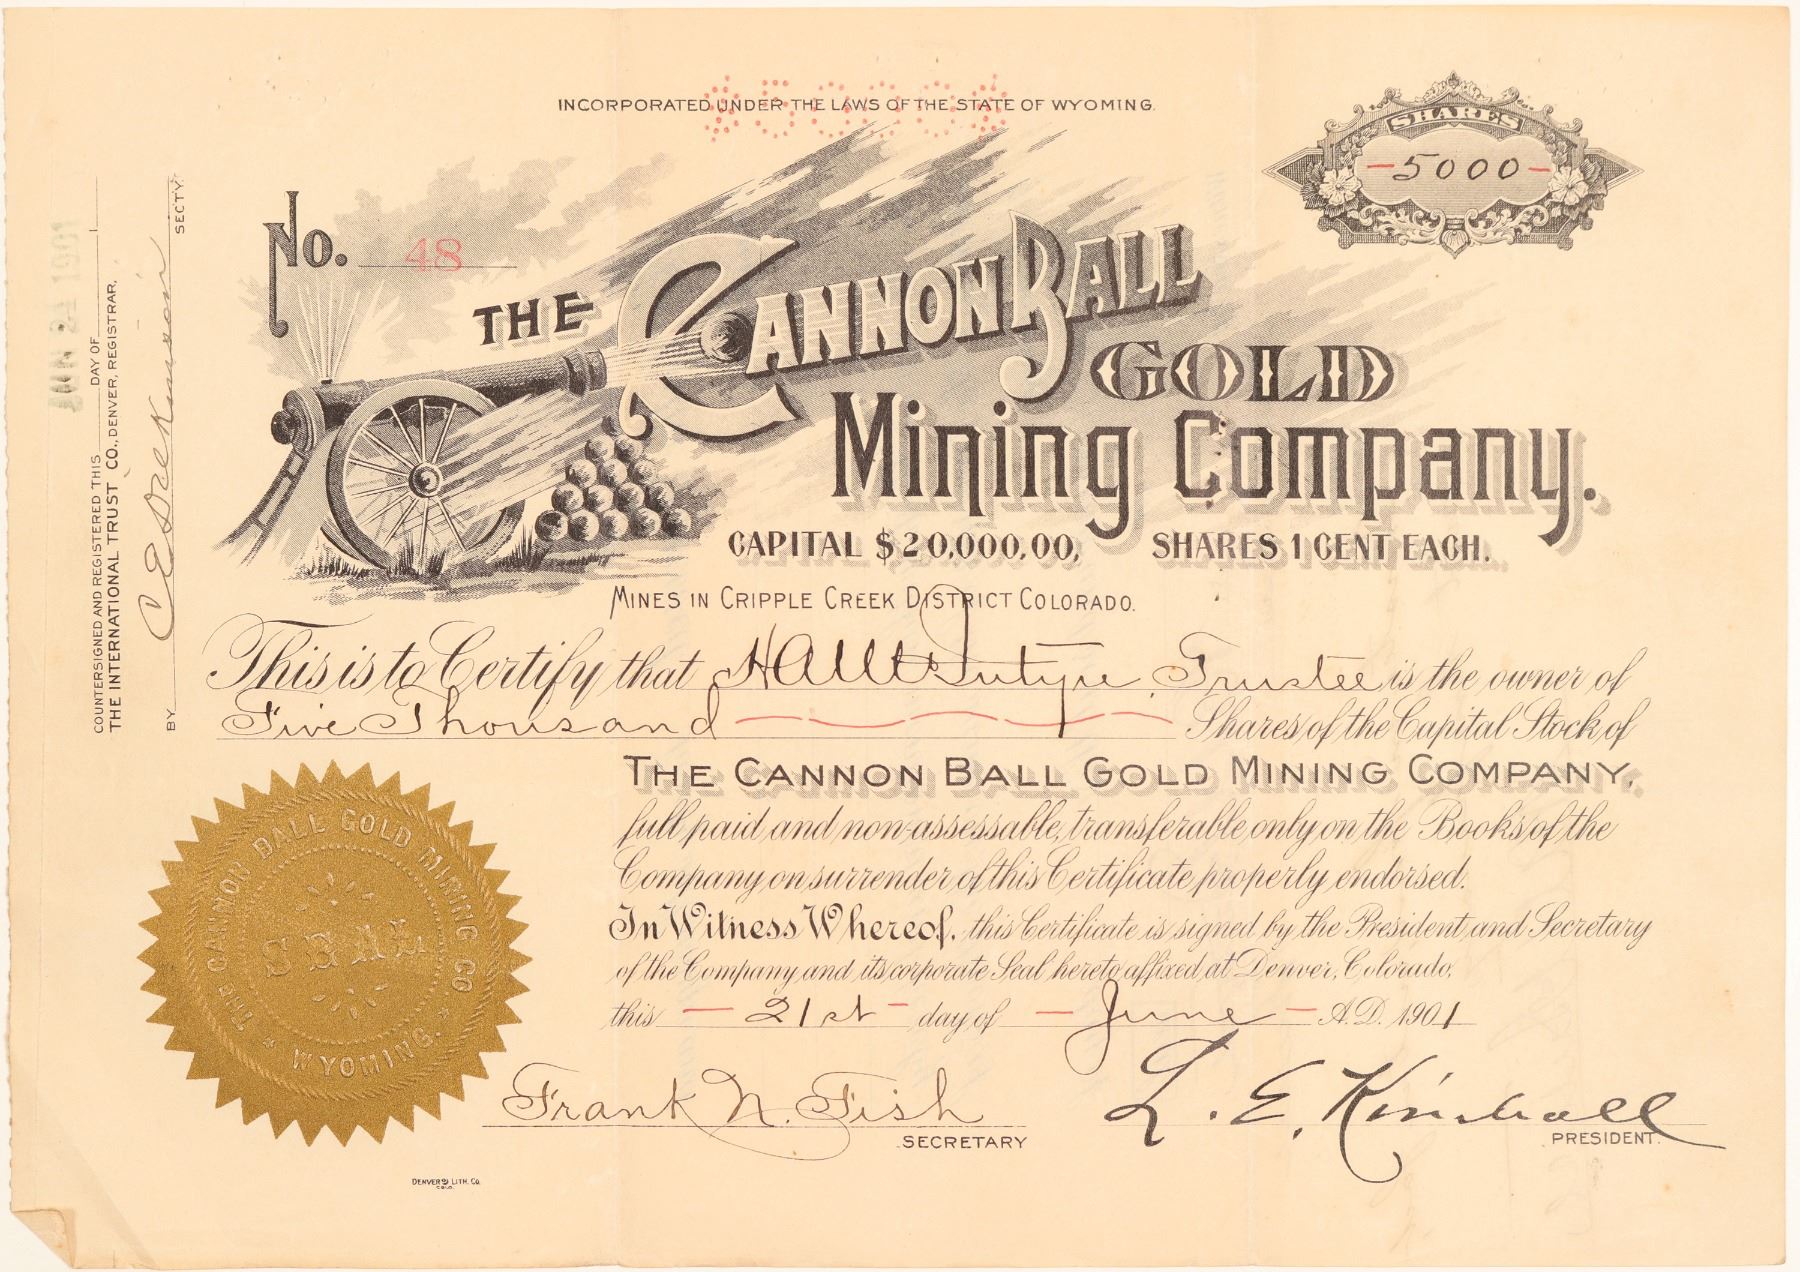 INCORPORATED UNDER THE LAWS OF THE STATE OF WYOMING.
SHARES
-5000-
No. 48
THE CANNON BALL
GOLD
Mining Company.
CAPITAL $20,000.00, SHARES 1 CENT EACH.
MINES IN CRIPPLE CREEK DISTRICT COLORADO.
This is to Certify that Trustee is the owner of
Five Thousand Shares of the Capital Stock of
THE CANNON BALL GOLD MINING COMPANY,
full paid and non-assessable, transferable only on the Books of the
Company on surrender of this Certificate properly endorsed.
In Witness Whereof, this Certificate is signed by the President and Secretary
of the Company and its corporate Seal hereto affixed at Denver, Colorado,
this - 21st - day of - June - A.D. 1901
Frank N. Fish
SECRETARY
L. E. Kimball
PRESIDENT.
THE CANNON BALL GOLD MINING CO
SEAL
* WYOMING. *
DENVER LITH. CO.
COLO.
COUNTERSIGNED AND REGISTERED THIS DAY OF 1
JUN 24 1901
THE INTERNATIONAL TRUST CO., DENVER, REGISTRAR,
BY SECTY.